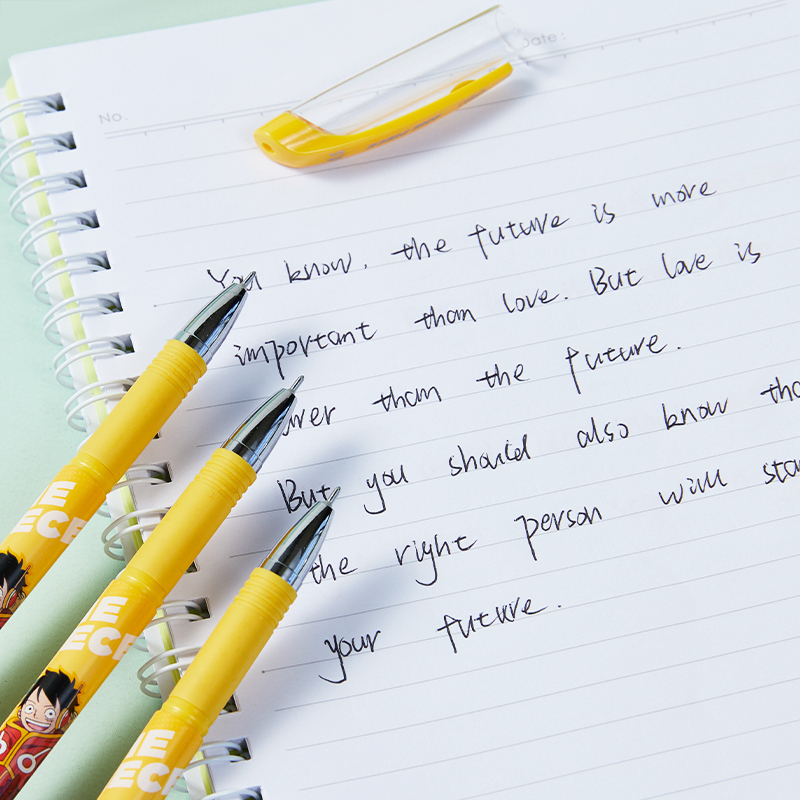 No.
Date:
You know, the future is more
important than love. But love is
than the future.
But you should also know
the right person will
your future.